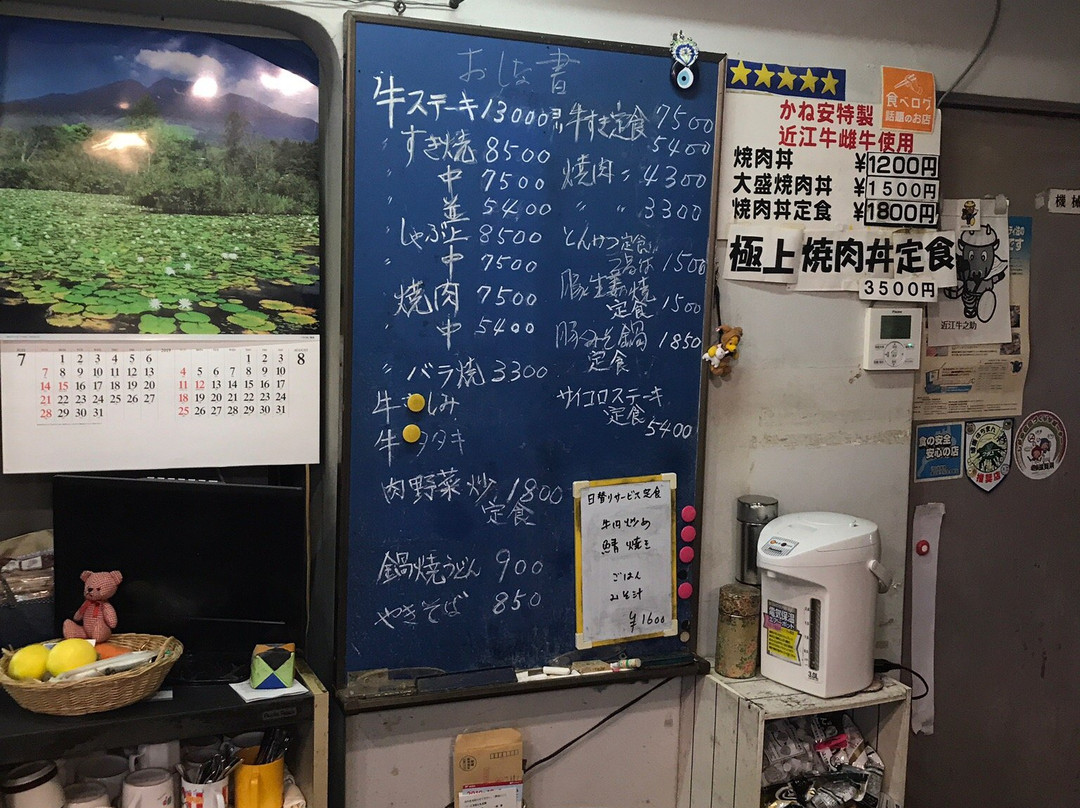 おしな書
牛ステーキ 13000
〃 すき焼 8500
〃 中 7500
並 5400
しゃぶ 上 8500
〃 中 7500
焼肉 7500
〃 中 5400
〃 バラ焼 3300
牛 しみ
牛 タタキ
肉野菜炒定食 1800
鍋焼うどん 900
やきそば 850
牛すき定食 7500
5400
焼肉 〃 4300
〃 〃 3300
とんかつ定食
1500
豚生姜焼
定食 1500
豚みそ鍋 1850
定食
サイコロステーキ
定食
5400
日替りサービス定食
牛肉炒め
鯖 焼き
ごはん
みそ汁
¥1600
★★★★★
食べログ
話題のお店
かね安特製
近江牛雌牛使用
焼肉丼 ¥1200円
大盛焼肉丼 ¥1500円
焼肉丼定食 ¥1800円
極上焼肉丼定食
3500円
近江牛之助
機械
食の安全
安心の店
推奨店
電気保温
エアーポット
3.0L
7
1 2 3 4 5 6
7 8 9 10 11 12 13
14 15 16 17 18 19 20
21 22 23 24 25 26 27
28 29 30 31
8
1 2 3
4 5 6 7 8 9 10
11 12 13 14 15 16 17
18 19 20 21 22 23 24
25 26 27 28 29 30 31